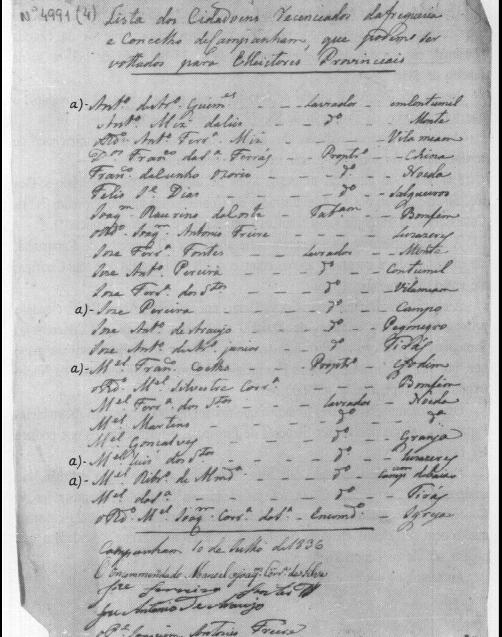 Nº 4991 (4)
Lista dos Cidadoens recenceados da freguezia
e Concelho de Campanham, que podem ser
vottados para Elleictores Provinciais
a)- Antº de Arº Guimes - - Lavrador - Contumil
Antº Miz da Luz - - dº - Monte
Rdº Antº Ferrª Miz - - Vila meam
Franco da Sª Ferrás - Propritº - China
Franco da Cunha Ozorio - - dº - Noeda
Felis Jº Dias - - dº - Salgueiros
Joaqm Racurino da Costa - Tabam - Bomfim
Rdº Joaqm Antonio Freire - -
Jose Ferrª Fontes - Lavrador - Monte
Jose Antº Pereira - - dº - Contumil
Jose Ferrª dos Stos - - dº - Vilameam
a)- Jose Pereira - - dº - Campo
Jose Antº de Araujo - - dº - Pegonegro
Jose Antº de Arº junior - - dº - Tirás
a)- Mel Franco Coelho - Propritº - Godim
Rdº Mel Silvestre Corrª - - Bomfim
Mel Ferrª dos Stos - - Lavrador - Noeda
Mel Martins - - dº - dª
Mel Gonçalves - - dº - Granja
a)- Mel Luis dos Stos - - dº -
a)- Mel Ribrº de Almdª - - dº -
Mel da Sª - - dº - Tirás
Rdº Mel Joaqm Corrª da Sª - Encomdº - Igreja
Campanham 10 de Julho de 1836
O Encommendado Manoel Joaqm Corrª da Silva
Jose
Jose Antonio de Araujo
Joaquim Antonio Freire